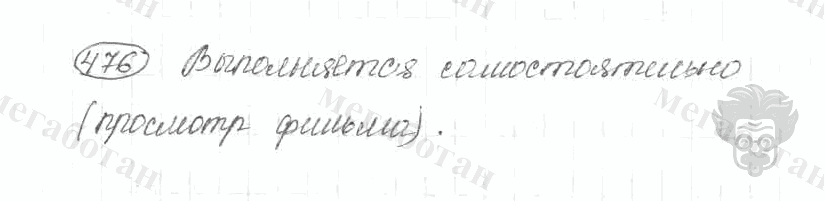 476 Выполняется самостоятельно
(просмотр фильма).
мегаботан
мегаботан
мегаботан
мегаботан